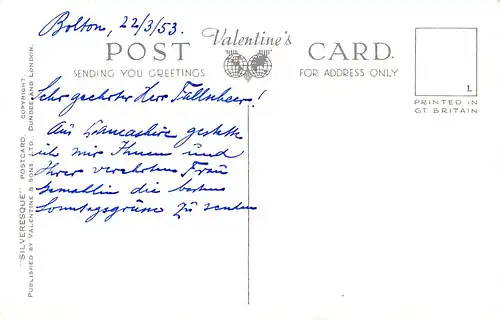 Bolton, 22/3/53.
Valentine's
POST CARD.
SENDING YOU GREETINGS
FOR ADDRESS ONLY
L
PRINTED IN
GT. BRITAIN
Sehr geehrter Herr Fallnbeer!
Aus Lancashire gestatte
ich mir Ihnen und
Ihrer verehrten Frau
Gemahlin die besten
Sonntagsgrüsse zu senden
"SILVERESQUE" POSTCARD. COPYRIGHT.
PUBLISHED BY VALENTINE & SONS, LTD., DUNDEE AND LONDON.